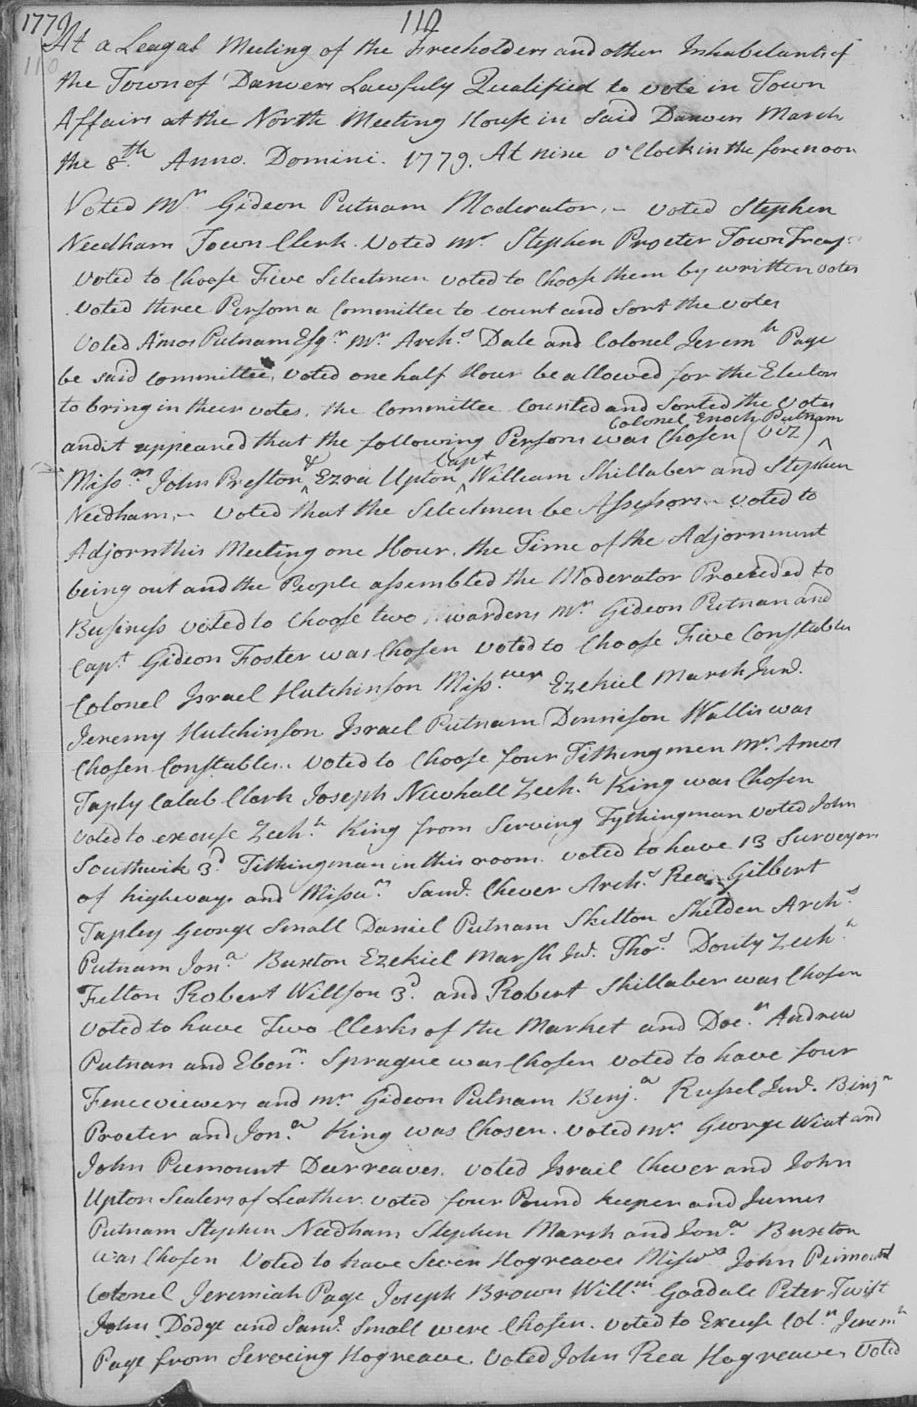 1779
110
110
At a Leagal Meeting of the Freeholders and other Inhabitants of
the Town of Danvers Lawfuly Qualified to vote in Town
Affairs at the North Meeting House in said Danvers March
the 8th Anno. Domini. 1779. At nine o'Clock in the forenoon
Voted Mr Gideon Putnam Moderator. – voted Stephen
Needham Town Clerk. voted mr. Stephen Procter Town Treasr
voted to Choose Five Selectmen voted to Choose them by written votes
voted three Persons a Committee to count and sort the votes
voted Amos Putnam Esqr. mr. Archs. Dale and Colonel Jeremh Page
be said committee, voted one half Hour be allowed for the Electors
to bring in their votes. the Committee Counted and Sorted the votes
Colonel Enoch Putnam
and it appeared that the following Persons was Chosen (viz) ^
& Capt
Missrs. John Preston ^ Ezra Upton ^ William Shillaber and Stephen
Needham, – voted that the Selectmen be Assessors – voted to
Adjorn this Meeting one Hour. the Time of the Adjornment
being out and the People assembled the Moderator Proceeded to
Business voted to Choose two wardens Mr. Gideon Putnam and
Capt. Gideon Foster was Chosen voted to Choose Five Constables
Colonel Israel Hutchinson Miss. Ezekiel Marsh Jund.
Jeremy Hutchinson Israel Putnam Dennison Wallis was
Chosen Constables. voted to Choose four Tithingmen Mr. Amos
Taply Calab Clark Joseph Newhall Zech.h King was Chosen
voted to excuse Zech.h King from Serving Tythingman voted John
Southwik 3d. Tithingman in this room. voted to have 13 Surveyors
of highways and Missrs. Saml. Chever Archs. Rea Gilbert
Tapley George Small Daniel Putnam Skelton Shelden Archs.
Putnam Jona. Buxton Ezekiel Marsh Jud. Thos. Douty Zech.h
Felton Robert Willson 3d. and Robert Shillaber was Chosen
voted to have Two Clerks of the Market and Doc.r Andrew
Putnan and Ebenr. Sprague was Chosen voted to have four
Fenceviewers and mr. Gideon Putnam Benj.a Russel Jund. Binja
Procter and Jon.a King was Chosen. voted mr. George Wiat and
John Pemount Deerreaves. voted Israil Chever and John
Upton Sealers of Leather. voted four Pound keeper and James
Putnam Stephen Needham Stephen Marsh and Jona. Buxton
was Chosen Voted to have Seven Hogreaves Missrs John Pimount
Colonel Jeremiah Page Joseph Brown Willm. Goadale Peter Twist
John Dodge and Saml. Small were Chosen. voted to Excuse Coln Jeremh
Page from Serveing Hogreave. Voted John Rea Hogreaves voted